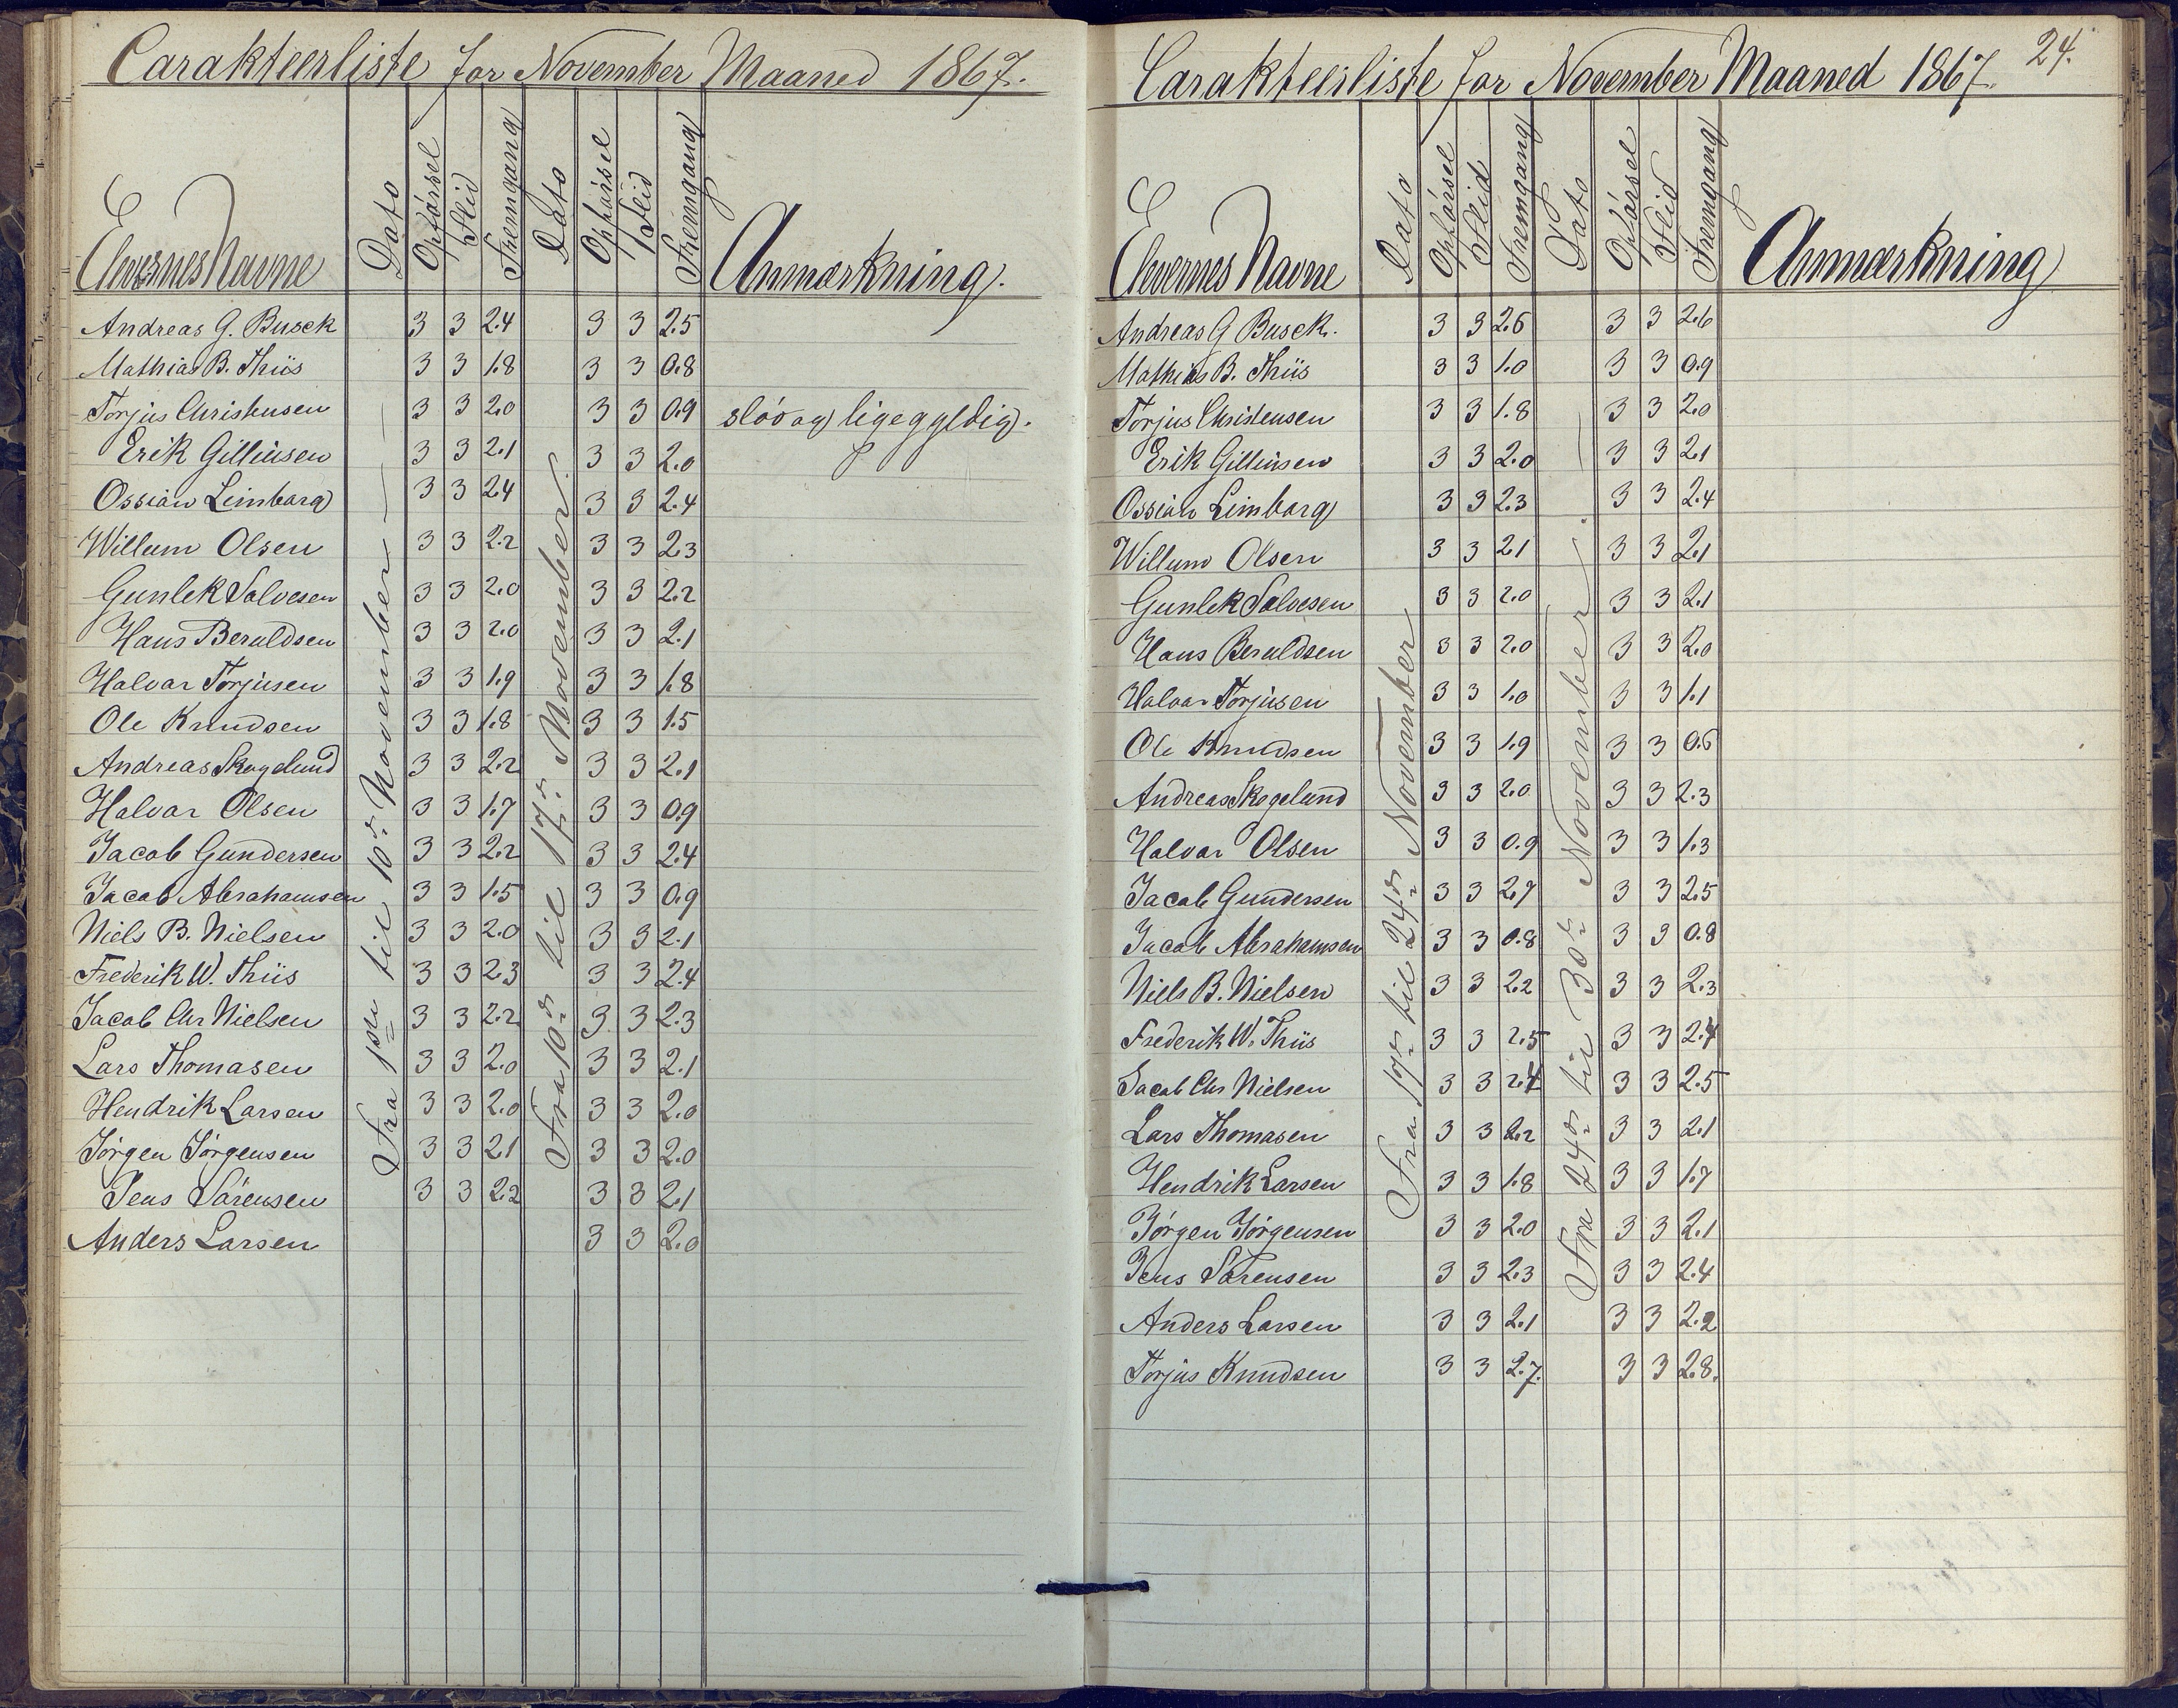 Carakteerliste for November Maaned 1867.
Elevernes Navne Dato Opførsel Flid Fremgang Dato Opførsel Flid Fremgang Anmærkning.
Fra 1ste til 10de November
Fra 10de til 17de November.
Andreas G. Busck 3 3 2.4 3 3 2.5
Mathias B. Thiis 3 3 1.8 3 3 0.8
Torjus Christensen 3 3 2.0 3 3 0.9 sløv og ligegyldig.
Erik Gilliusen 3 3 2.1 3 3 2.0
Ossian Limborg 3 3 2.4 3 3 2.4
Willum Olsen 3 3 2.2 3 3 2.3
Gunlek Salvesen 3 3 2.0 3 3 2.2
Hans Beruldsen 3 3 2.0 3 3 2.1
Halvar Torjusen 3 3 1.9 3 3 1.8
Ole Knudsen 3 3 1.8 3 3 1.5
Andreas Skogelund 3 3 2.2 3 3 2.1
Halvar Olsen 3 3 1.7 3 3 0.9
Jacob Gundersen 3 3 2.2 3 3 2.4
Jacob Abrahamsen 3 3 1.5 3 3 0.9
Niels B. Nielsen 3 3 2.0 3 3 2.1
Frederik W. Thiis 3 3 2.3 3 3 2.4
Jacob Chr Nielsen 3 3 2.2 3 3 2.3
Lars Thomasen 3 3 2.0 3 3 2.1
Hendrik Larsen 3 3 2.0 3 3 2.0
Jørgen Jørgensen 3 3 2.1 3 3 2.0
Jens Sørensen 3 3 2.2 3 3 2.1
Anders Larsen 3 3 2.0
24.
Carakteerliste for November Maaned 1867.
Elevernes Navne Dato Opførsel Flid Fremgang Dato Opførsel Flid Fremgang Anmærkning
Fra 17de til 24de November
Fra 24de til 30te November
Andreas G Busck. 3 3 2.6 3 3 2.6
Mathias B. Thiis 3 3 1.0 3 3 0.9
Torjus Christensen 3 3 1.8 3 3 2.0
Erik Gilliusen 3 3 2.0 3 3 2.1
Ossian Limborg 3 3 2.3 3 3 2.4
Willum Olsen 3 3 2.1 3 3 2.1
Gunlek Salvesen 3 3 2.0 3 3 2.1
Hans Beruldsen 3 3 2.0 3 3 2.0
Halvar Torjusen 3 3 1.0 3 3 1.1
Ole Knudsen 3 3 1.9 3 3 0.6
Andreas Skogelund 3 3 2.0 3 3 2.3
Halvar Olsen 3 3 0.9 3 3 1.3
Jacob Gundersen 3 3 2.7 3 3 2.5
Jacob Abrahamsen 3 3 0.8 3 3 0.8
Niels B. Nielsen 3 3 2.2 3 3 2.3
Frederik W. Thiis 3 3 2.5 3 3 2.4
Jacob Chr Nielsen 3 3 2.4 3 3 2.5
Lars Thomasen 3 3 2.2 3 3 2.1
Hendrik Larsen 3 3 1.8 3 3 1.7
Jørgen Jørgensen 3 3 2.0 3 3 2.1
Jens Sørensen 3 3 2.3 3 3 2.4
Anders Larsen 3 3 2.1 3 3 2.2
Torjus Knudsen 3 3 2.7. 3 3 2.8.